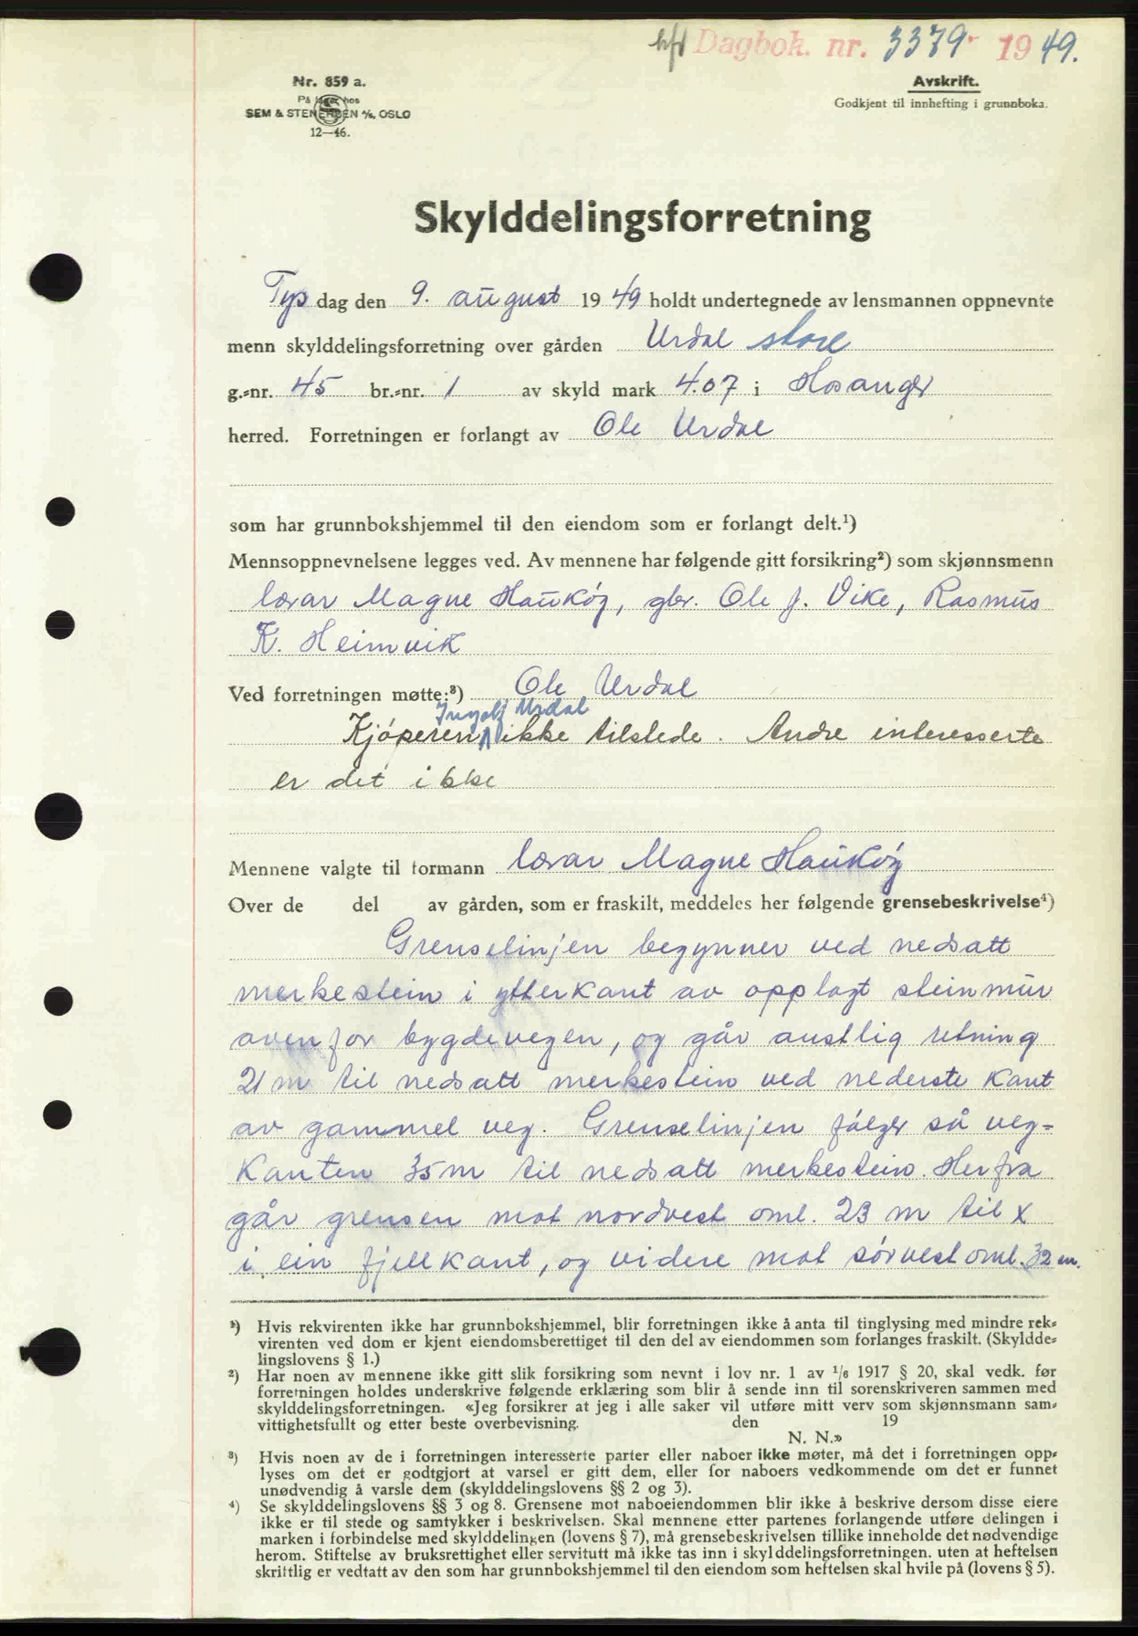 hft Dagbok. nr. 3379 - 1949.
Nr. 859 a.
På lager hos
SEM & STENERSEN A/S, OSLO
12—46.
Avskrift.
Godkjent til innhefting i grunnboka.
Skylddelingsforretning
Tysdag den 9. august 1949 holdt undertegnede av lensmannen oppnevnte
menn skylddelingsforretning over gården Urdal store
g.-nr. 45 br.-nr. 1 av skyld mark 4.07 i Hosanger
herred. Forretningen er forlangt av Ole Urdal
som har grunnbokshjemmel til den eiendom som er forlangt delt.¹)
Mennsoppnevnelsene legges ved. Av mennene har følgende gitt forsikring²) som skjønnsmenn
lærar Magne Haukøy, gbr. Ole J. Vike, Rasmus
K. Heimvik
Ved forretningen møtte:³) Ole Urdal
Ingolf Urdal
Kjøperen ikke tilstede. Andre interesserte
er det ikke
Mennene valgte til formann lærar Magne Haukøy
Over de del av gården, som er fraskilt, meddeles her følgende grensebeskrivelse⁴)
Grenselinjen begynner ved nedsatt
merkestein i ytterkant av opplagt steinmur
ovenfor bygdevegen, og går austlig retning
21 m til nedsatt merkestein ved nederste kant
av gammel veg. Grenselinjen følger så veg-
kanten 35 m til nedsatt merkestein. Herfra
går grensen mot nordvest oml. 23 m til x
i ein fjellkant, og videre mot sørvest oml. 32 m.
¹) Hvis rekvirenten ikke har grunnbokshjemmel, blir forretningen ikke å anta til tinglysing med mindre rek-
virenten ved dom er kjent eiendomsberettiget til den del av eiendommen som forlanges fraskilt. (Skyldde-
lingslovens § 1.)
²) Har noen av mennene ikke gitt slik forsikring som nevnt i lov nr. 1 av 1/6 1917 § 20, skal vedk. før
forretningen holdes underskrive følgende erklæring som blir å sende inn til sorenskriveren sammen med
skylddelingsforretningen. «Jeg forsikrer at jeg i alle saker vil utføre mitt verv som skjønnsmann sam-
vittighetsfullt og etter beste overbevisning. den 19
N. N.»
³) Hvis noen av de i forretningen interesserte parter eller naboer ikke møter, må det i forretningen opp-
lyses om det er godtgjort at varsel er gitt dem, eller for naboers vedkommende om det er funnet
unødvendig å varsle dem (skylddelingslovens §§ 2 og 3).
⁴) Se skylddelingslovens §§ 3 og 8. Grensene mot naboeiendommen blir ikke å beskrive dersom disse eiere
ikke er til stede og samtykker i beskrivelsen. Skal mennene etter partenes forlangende utføre delingen i
marken i forbindelse med skylddelingen (lovens § 7), må grensebeskrivelsen tillike inneholde det nødvendige
herom. Stiftelse av bruksrettighet eller servitutt må ikke tas inn i skylddelingsforretningen. uten at heftelsen
skriftlig er vedtatt av den som har grunnbokshjemmel til den eiendom som heftelsen skal hvile på (lovens § 5).